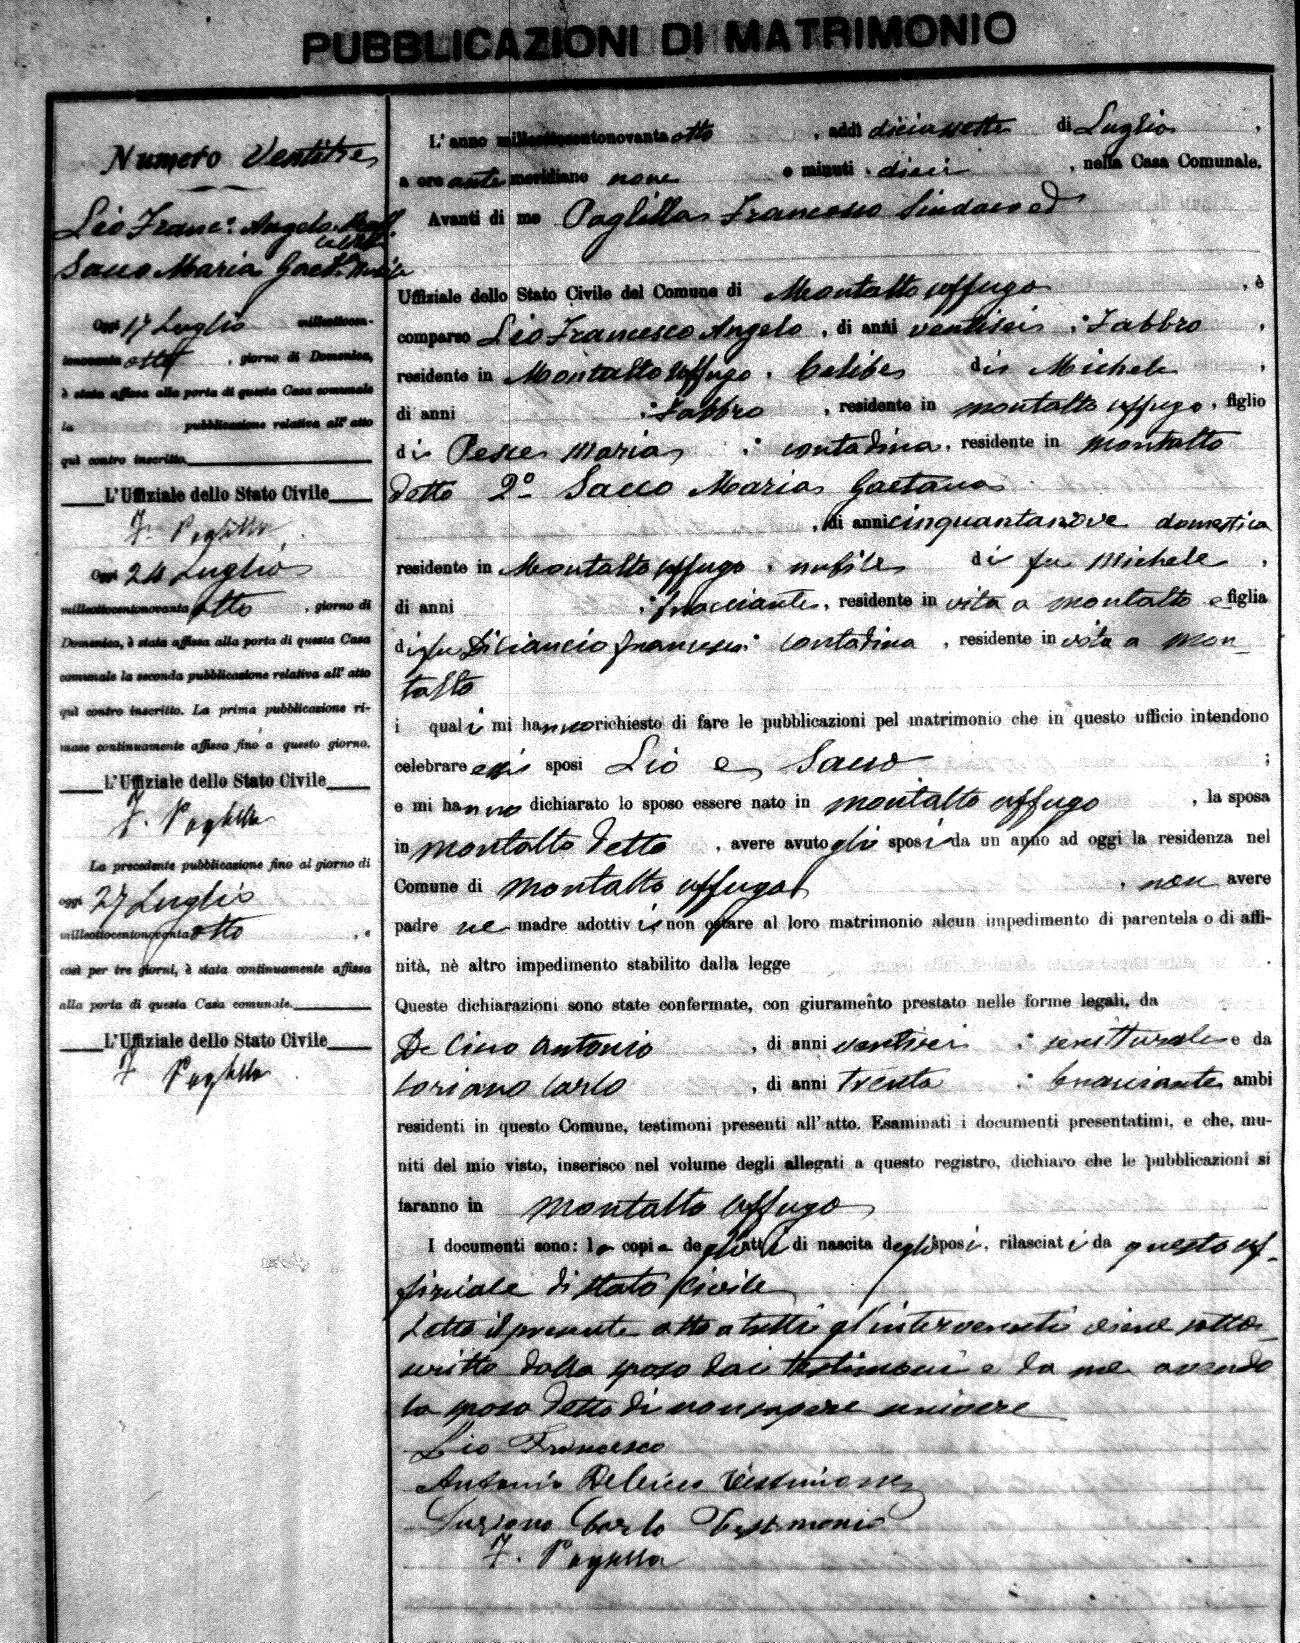 PUBBLICAZIONI DI MATRIMONIO
Numero Ventitre
Lio Franc.º Angelo
Sacco Maria Gaet.ª
Oggi 17 Luglio millottocen-
tonovanta otto, giorno di Domenica,
è stata affissa alla porta di questa Casa comunale
la pubblicazione relativa all' atto
quì contro inscritto
L'Uffiziale dello Stato Civile
F. Paglilla
Oggi 24 Luglio
millottocentonovanta otto, giorno di
Domenica, è stata affissa alla porta di questa Casa
comunale la seconda pubblicazione relativa all' atto
quì contro inscritto. La prima pubblicazione ri-
mase continuamente affissa fino a questo giorno.
L'Uffiziale dello Stato Civile
F. Paglilla
La precedente pubblicazione fino al giorno di
oggi 27 Luglio
millottocentonovanta otto, e
così per tre giorni, è stata continuamente affissa
alla porta di questa Casa comunale.
L'Uffiziale dello Stato Civile
F. Paglilla
L' anno millottocentonovanta otto, addì diciassette di Luglio,
a ore ante meridiane nove e minuti dieci, nella Casa Comunale.
Avanti di me Paglilla Francesco Sindaco ed
Uffiziale dello Stato Civile del Comune di Montalto uffugo, è
comparso Lio Francesco Angelo, di anni ventisei, Fabbro,
residente in Montalto Uffugo, Celibe di Michele,
di anni Fabbro, residente in montalto uffugo, figlio
di Pesce Maria, contadina, residente in montalto
detto 2º Sacco Maria Gaetana
, di anni cinquantanove domestica
residente in Montalto uffugo, nubile di fu Michele,
di anni bracciante, residente in vita a montalto e figlia
di fu francesca contadina, residente in vita a mon-
talto
i quali mi hanno richiesto di fare le pubblicazioni pel matrimonio che in questo ufficio intendono
celebrare essi sposi Lio e Sacco;
e mi hanno dichiarato lo sposo essere nato in montalto uffugo, la sposa
in montalto detto, avere avuto gli sposi da un anno ad oggi la residenza nel
Comune di montalto uffugo, non avere
padre ne madre adottivi e non ostare al loro matrimonio alcun impedimento di parentela o di affi-
nità, nè altro impedimento stabilito dalla legge.
Queste dichiarazioni sono state confermate, con giuramento prestato nelle forme legali, da
De Cicco Antonio, di anni ventisei, scritturale e da
Soriano Carlo, di anni trenta, bracciante ambi
residenti in questo Comune, testimoni presenti all' atto. Esaminati i documenti presentatimi, e che, mu-
niti del mio visto, inserisco nel volume degli allegati a questo registro, dichiaro che le pubblicazioni si
faranno in montalto uffugo
I documenti sono: le copie degli atti di nascita degli sposi, rilasciati da questo uf-
fiziale di stato civile
Letto il presente atto a tutti gl'intervenuti viene sotto-
scritto dallo sposo dai testimoni e da me avendo
la sposa detto di non sapere scrivere
Lio Francesco
Antonio De Cicco Testimone
Suriano Carlo Testimonio
F. Paglilla